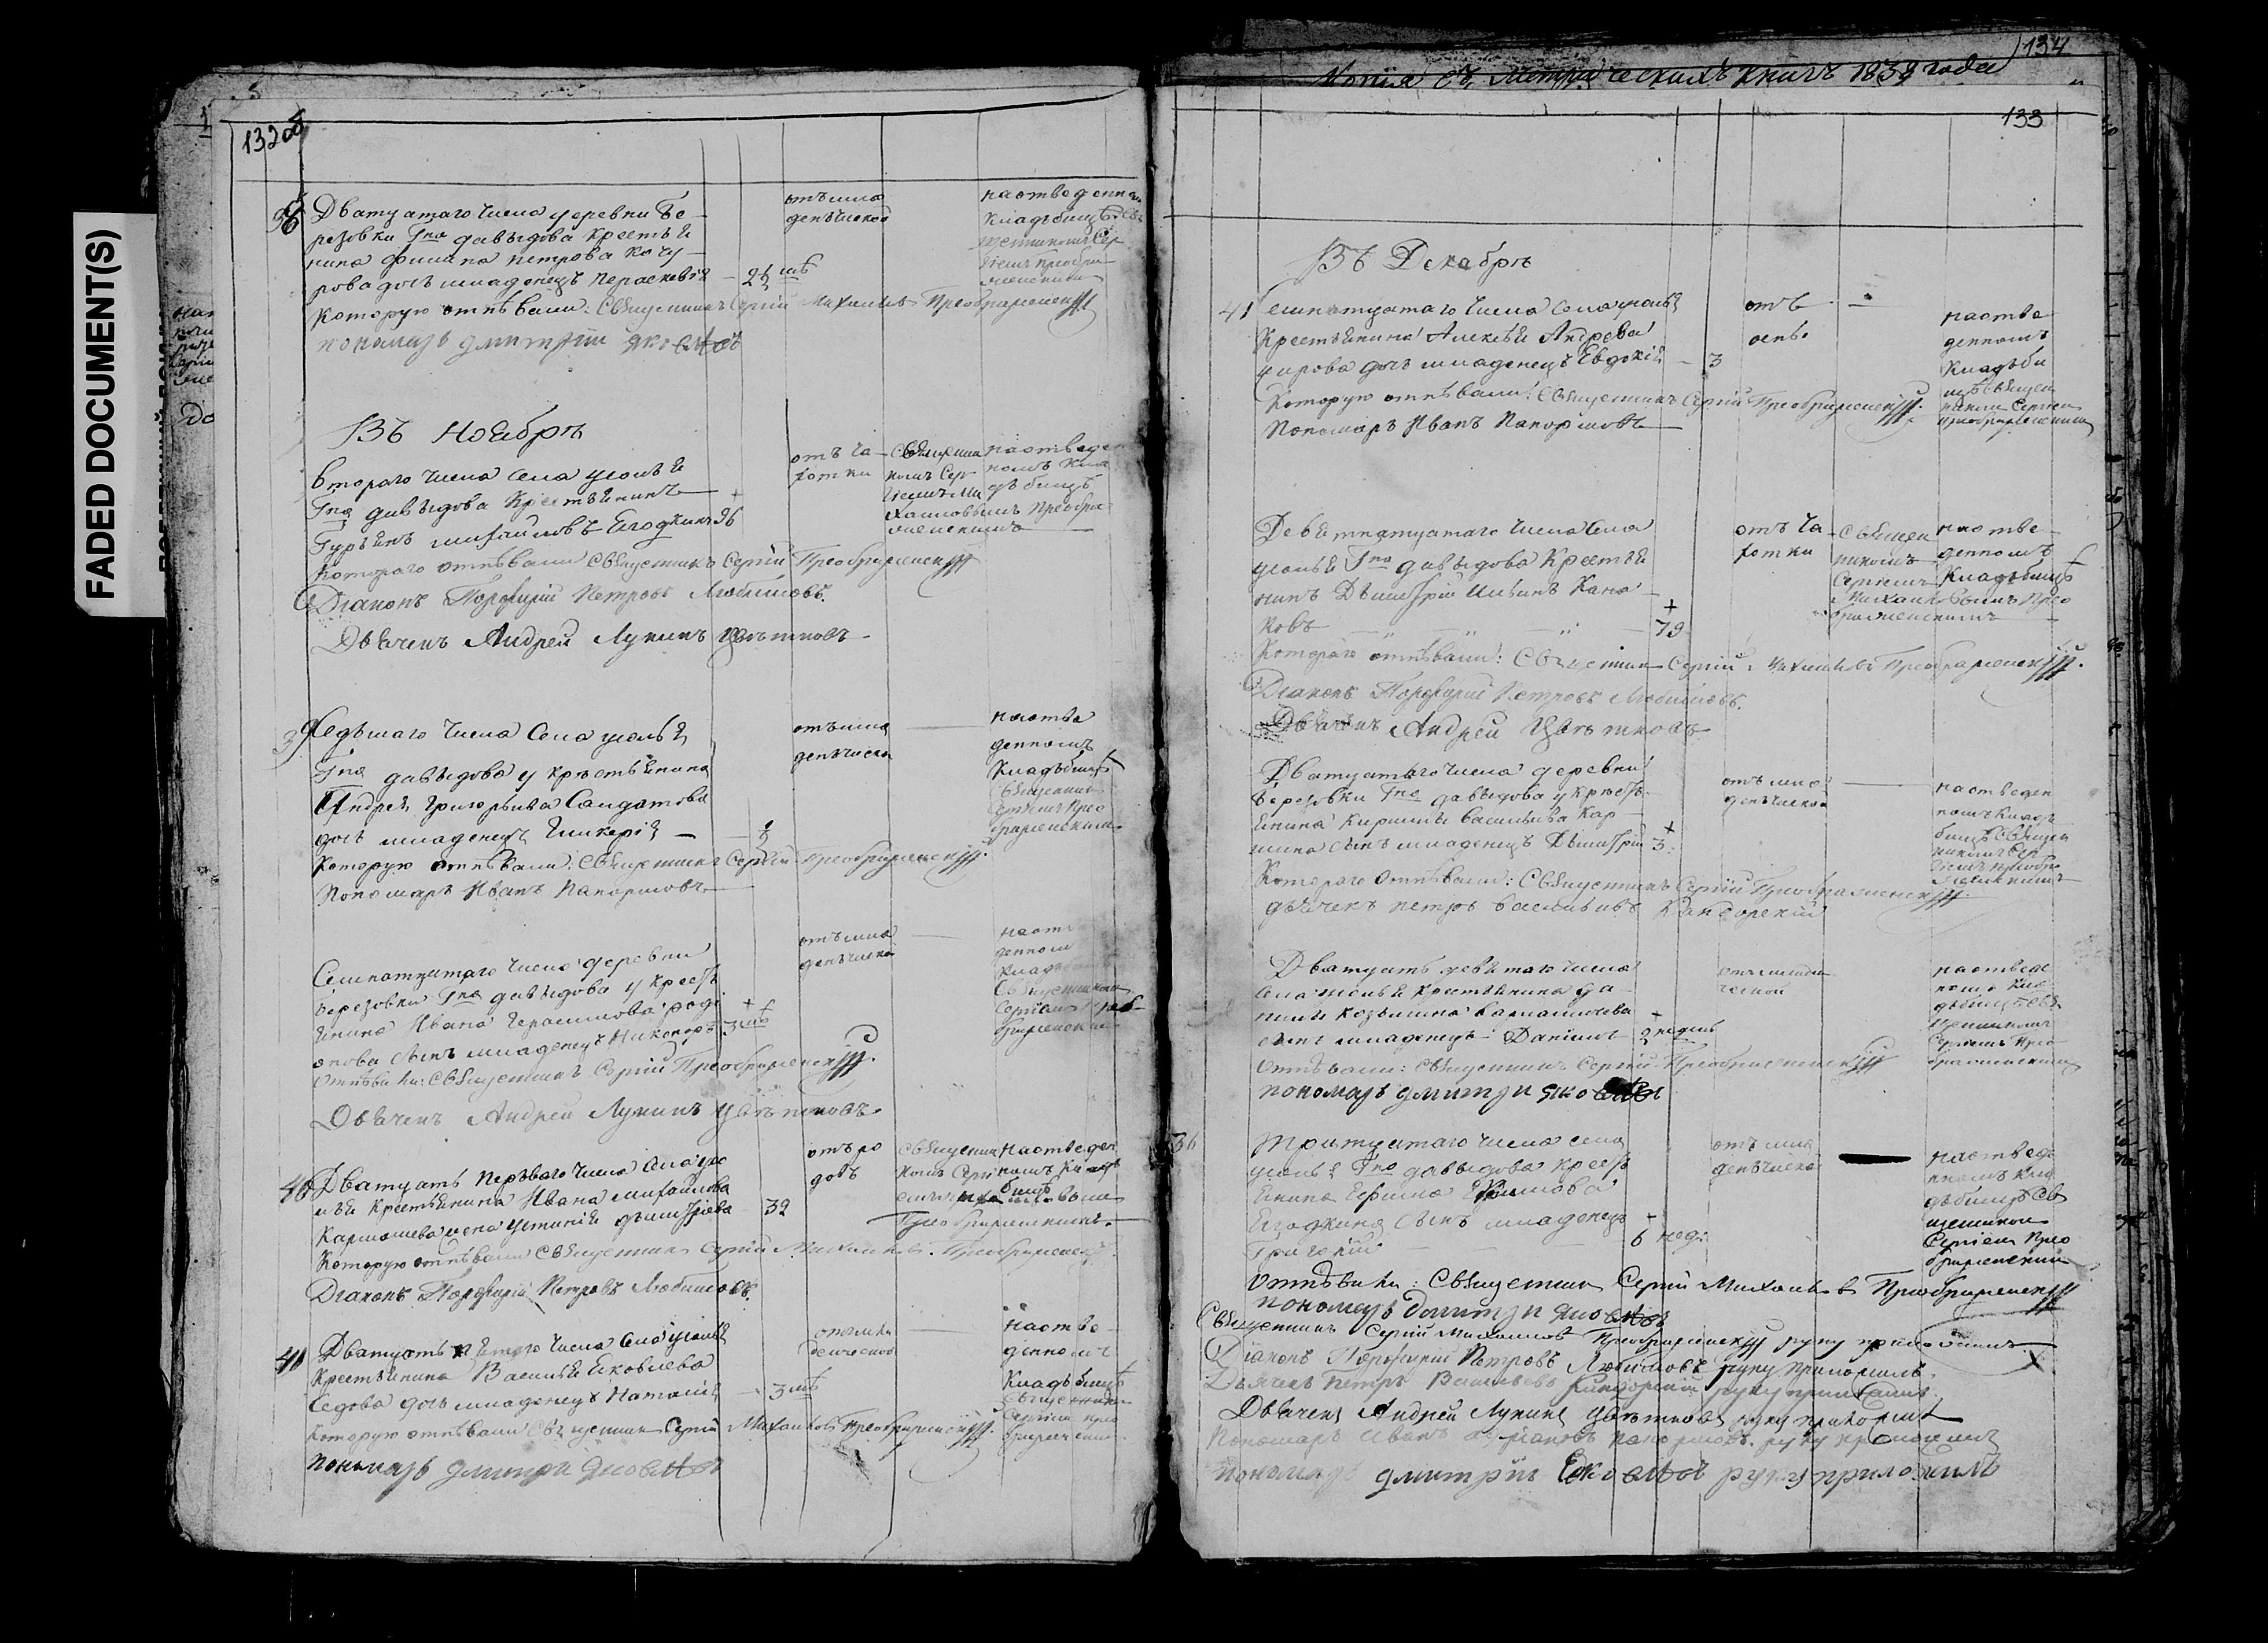 FADED DOCUMENT(S)
132об
38 Дватцатаго числа деревни Бе-
резовки Гна давыдова крестья
нина Филипа петрова
дочь младенецъ Параскевія - 2½
отъ мла
денческой
на отведенном
кладбищѣ
Которую отпѣвали: Священникъ Сергій Михаиловъ Преображенскій
пономарь дмитрій яковлевъ
Въ Ноябрѣ
втораго числа села усолья
Гна давыдова Крестьянинъ
Гурьянъ михайловъ Ягодкинъ 96
отъ ча-
хотки
Священни
комъ Сер-
гіемъ Ми
хаиловымъ Преобра-
женскимъ
на отведен
номъ кла
дбищѣ
Котораго отпѣвали Священникъ Сергій Преображенскій
Діаконъ Порфирій Петровъ Любимовъ.
Дьячекъ Андрей Лукинъ Цвѣтковъ
39 Седьмаго числа Села усолья
Гна давыдова у крестьянина
Андрея Григорьева Солдатова
дочь младенецъ Гликерія - ½
отъ мла
денческой
на отве
денномъ
Кладбищѣ
Священникъ
Сергіемъ Прео
браженскимъ
Которую отпѣвали: Священникъ Сергій Преображенскій
Пономарь Иванъ Папормовъ
Семнатцатаго числа деревни
Березовки Гна давыдова у крест
янина Ивана Герасимова роди
онова сынъ младенецъ Никаноръ 3
отъ мла
денческой
на отве
денном
кладбищѣ
Священником
Сергіем Прео
браженским
Отпѣвали: Священникъ Сергій Преображенскій
Дьячекъ Андрей Лукинъ Цвѣтковъ
40 Дватцать перьваго числа села усо
лья Крестьянина Ивана михайлова
жена Устинія дьмитріева 32
отъ ро
довъ
Священни
комъ Сергі
емъ
Преображенскимъ
на отведен
номъ клад
бищѣ
Которую отпѣвали Священникъ Сергій Михаиловъ Преображенскій
Діаконъ Порфирій Петровъ Любимовъ.
Дватцать пятого числа села усолья
Крестьянина Василья Яковлева
Седова дочь младенецъ Наталія - 3
отъ мла
денческой
на отве-
денномъ
Кладбищѣ
Которую отпѣвали Священникъ Сергій Михаиловъ Преображенскій
пономарь дмитрій яковлевъ
Копія съ Метрическихъ книгъ 1838 года
134
133
Въ Декабрѣ
41 Семнатцатаго числа села усолья
Крестьянина Алексѣя Андреева
дочь младенецъ Евдокія - 3
отъ
оспы
на отве
денномъ
Кладби
щѣ Священ
никомъ Сергіем
Преображенским
Которую отпѣвали: Священникъ Сергій Преображенскій
Пономарь Иванъ Папормовъ
Девятнатцатаго числа села
усолья Гна давыдова Крестья
нинъ Дьмитрій Ильинъ Кана-
ковъ 79
отъ ча
хотки
Священ
никомъ
Сергіемъ
Михаиловымъ Прео
браженскимъ
на отве-
денномъ
Кладбищѣ
Котораго отпѣвали: Священникъ Сергій Михаиловъ Преображенскій
Діаконъ Порфирій Петровъ Любимовъ.
Дьячекъ Андрей Цвѣтковъ
Дватцатаго числа деревни
Березовки Гна давыдова у крест
янина Кирилы васильева Кар-
пина сынъ младенецъ Дьмитрій 3
отъ мла
денческой
на отведен
номъ клад
бищѣ Священ
никомъ Сер
гіемъ Преобра
женскимъ
Котораго отпѣвали: Священникъ Сергій Преображенскій
дьячекъ петръ васильевъ Кандорскій
Дватцать девятаго числа
села усолья Крестьянина Да-
нилы Козьмина
сынъ младенецъ Даніилъ 2 недель
отъ младен
ческой
на отведе
номъ кла
дбищѣ Свя
щенникомъ
Сергіемъ Прео
браженским
Отпѣвали: Священникъ Сергій Преображенскій
пономарь дмитри яковлевъ
36 Тритцатаго числа села
усолья Гна давыдова крест
янина Ефима Ефимова
Ягодкина сынъ младенецъ
Григорій 6 нед:
отъ мла
денческой
на отведе
нномъ кла
дбищѣ Свя
щенником
Сергіем Прео
браженским
Отпѣвали: Священникъ Сергій Михаиловъ Преображенскій
пономарь дмитри яковлевъ
Священникъ Сергій Михаиловъ Преображенскій руку приложилъ
Діаконъ Порфирій Петровъ Любимовъ руку приложилъ.
Дьячекъ Петръ Васильевъ Кандорскій руку приложилъ.
Дьячекъ Андрей Лукинъ Цвѣтковъ руку приложилъ
Пономарь Иванъ Папормовъ руку приложилъ
пономарь дмитрій Яковлевъ руку приложилъ